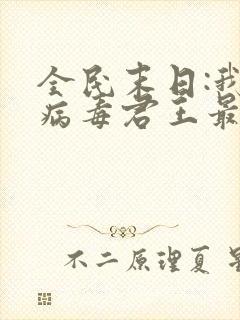 全民末日:我
病毒君王最
不二原理夏